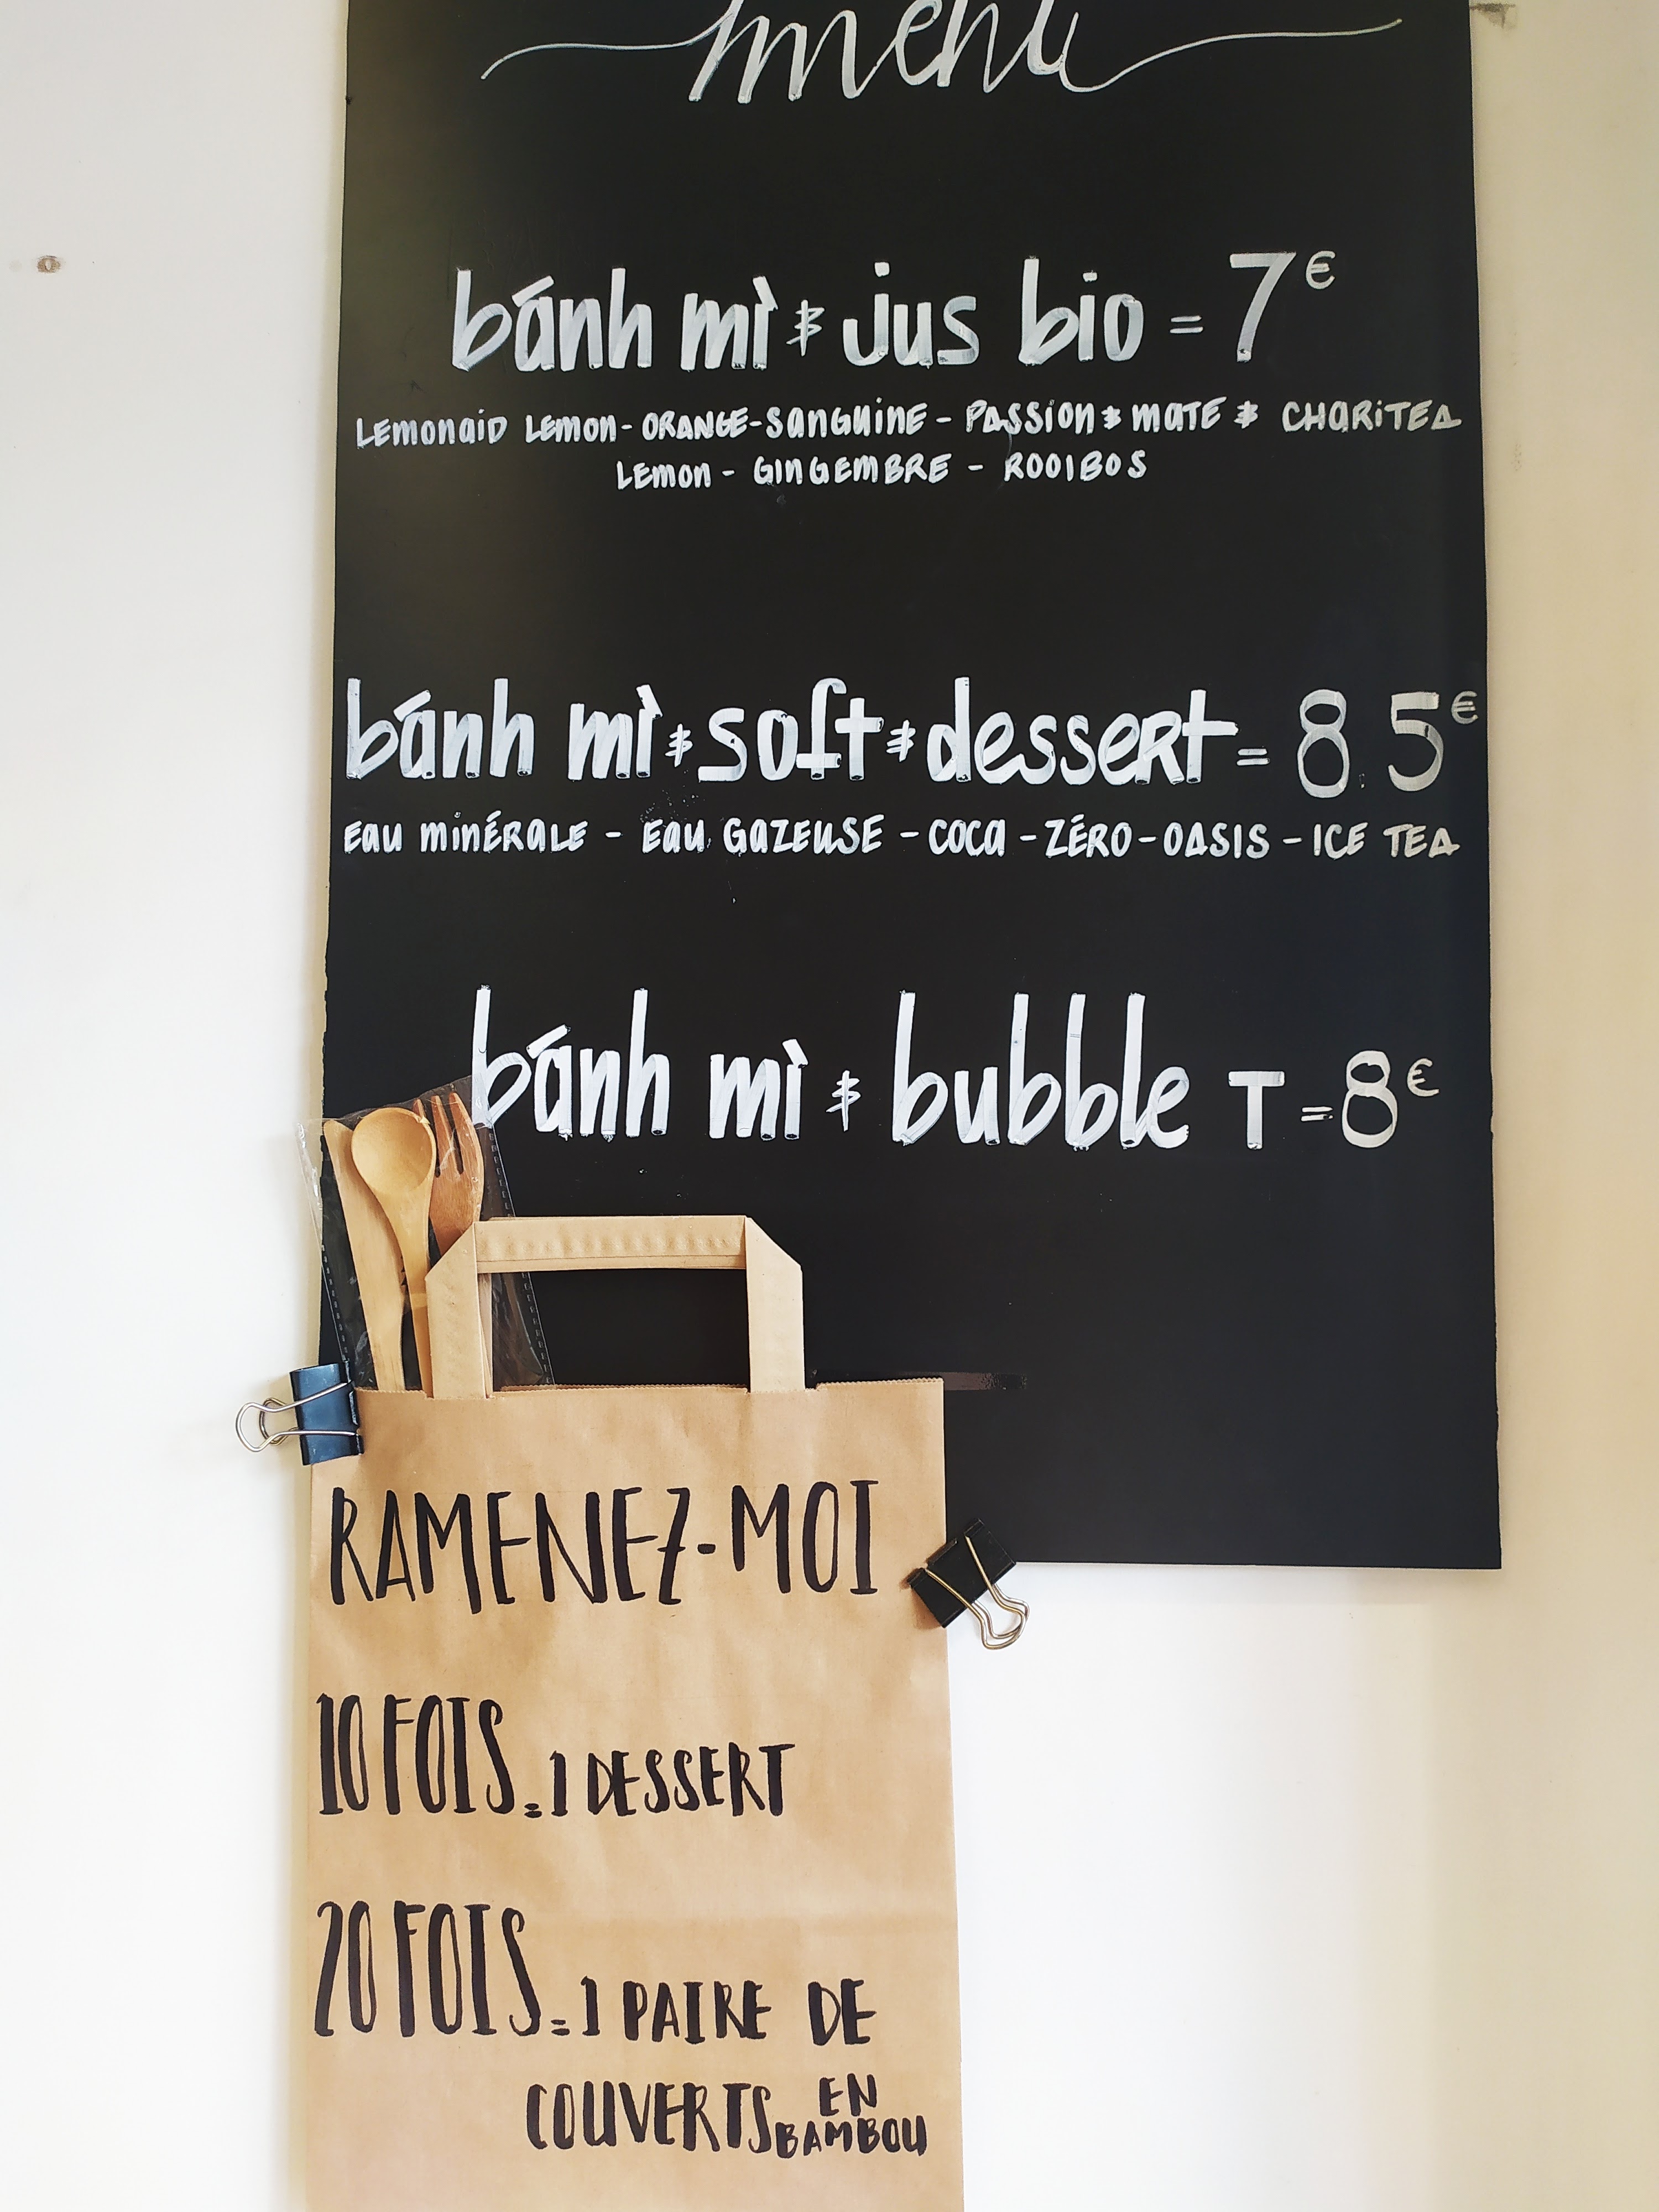 menu
bánh mì & jus bio = 7€
Lemonaid Lemon - ORANGE - Sanguine - Passion & mate & CHARiTEA
Lemon - GinGEMBRE - ROOIBOS
bánh mì & soft & dessert = 8.5€
Eau minÉRale - Eau GaZEUSE - COCa - ZÉRO - OASIS - ICE TEA
bánh mì & bubble T = 8€
RAMENEZ-MOI
10 FOIS = 1 DESSERT
20 FOIS = 1 PAIRE DE
COUVERTS EN
BAMBOU